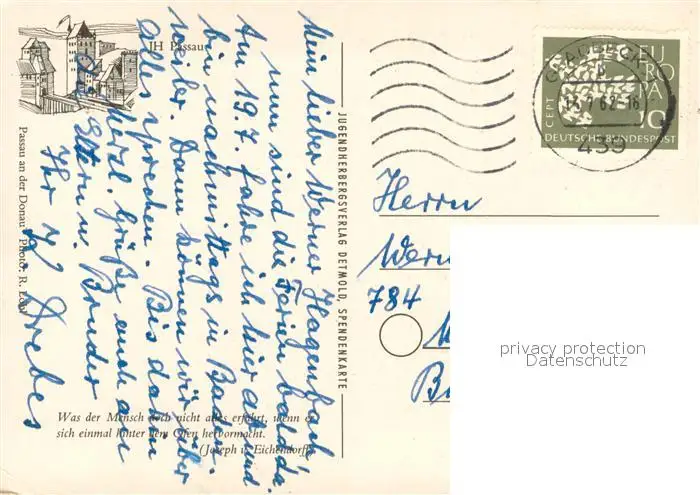 JH Passau
Mein lieber Werner Hagenbach
nun sind die Ferien bald da.
Am 19.7. fahre ich hier ab und
bin nachmittags in Baden
weiler. Dann können wir über
alles sprechen. Bis dahin
herzl. Grüße auch an
Eltern u. Bruder
Ihr
Drebes
Passau an der Donau Photo: R. Löbl
Was der Mensch doch nicht alles erfährt, wenn er
sich einmal hinter dem Ofen hervormacht.
(Joseph v. Eichendorff)
JUGENDHERBERGSVERLAG DETMOLD, SPENDENKARTE
GLADBECK
13.7.62-16
439
EUROPA
CEPT
10
DEUTSCHE BUNDESPOST
Herrn
Wern
784
privacy protection
Datenschutz